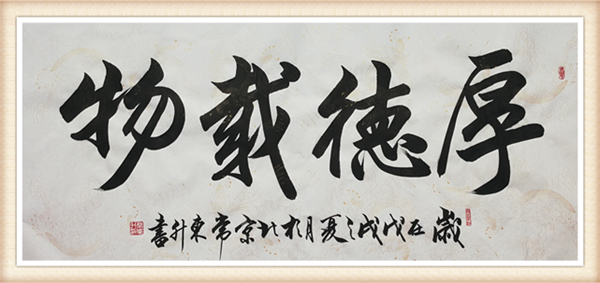 厚德載物
歲在戊戌之夏月於北京常東升書